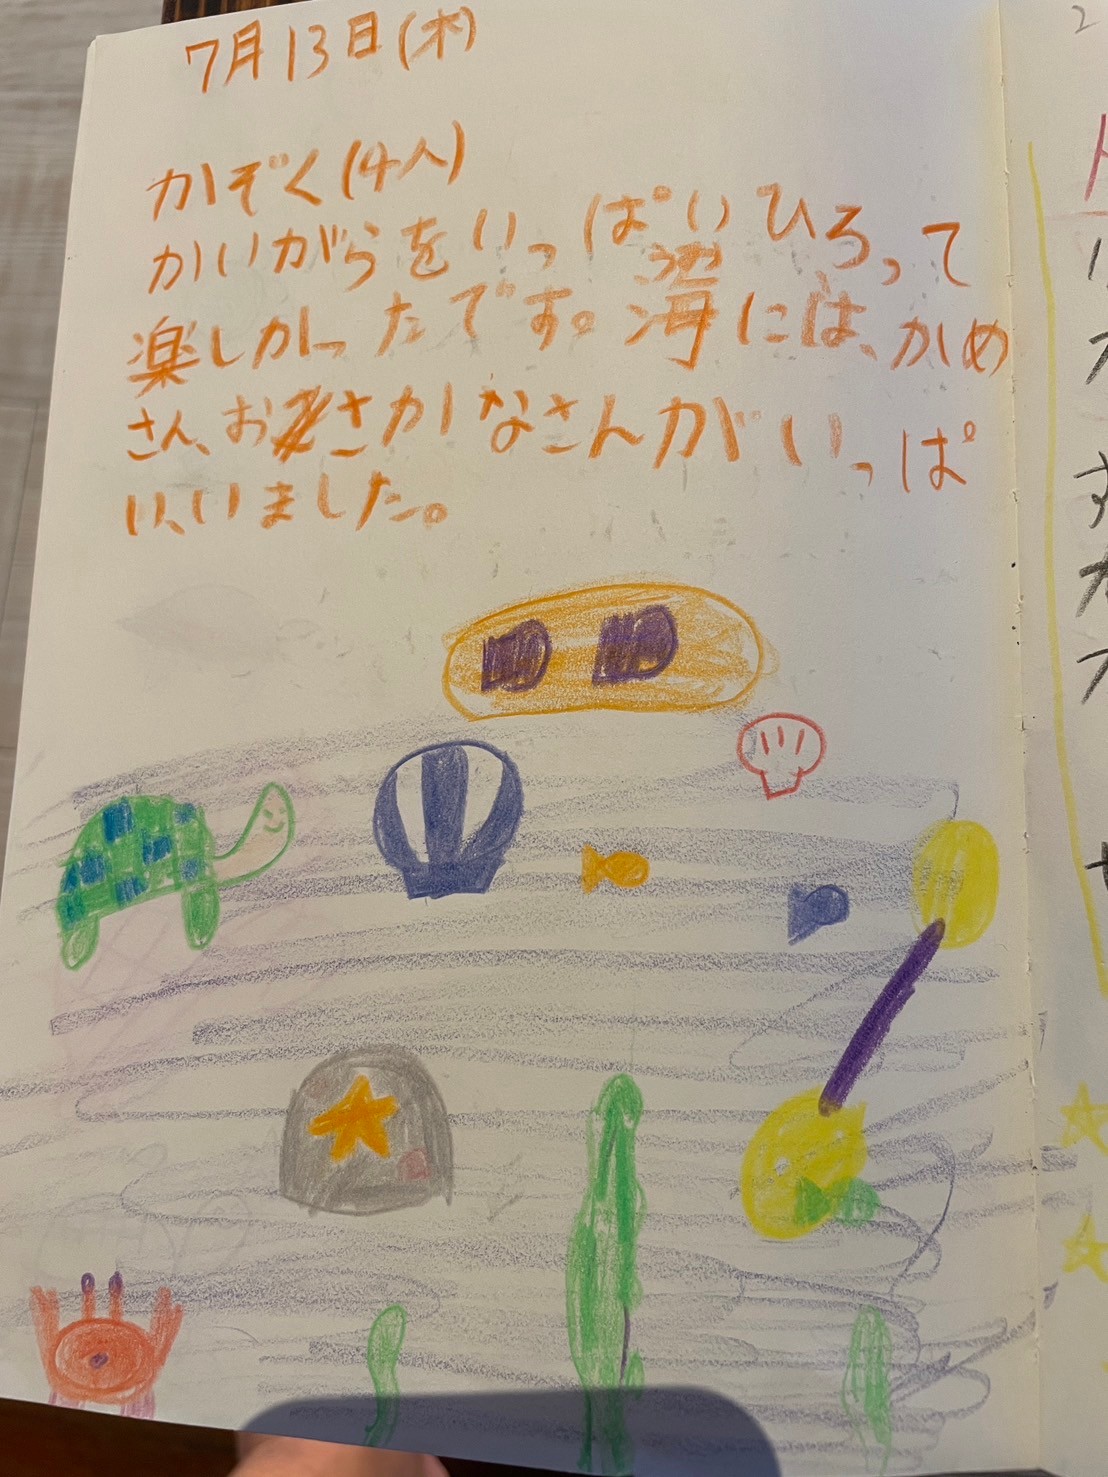 7月13日(木)
かぞく(4人)
かいがらをいっぱいひろって
楽しかったです。海には、かめ
さん、おさかなさんがいっぱ
い、いました。